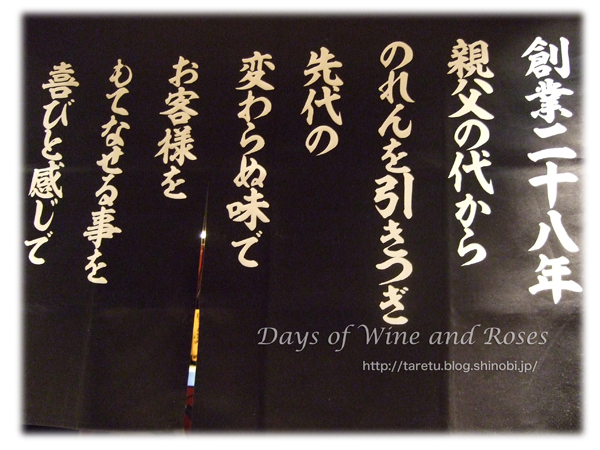 創業二十八年
親父の代から
のれんを引きつぎ
先代の
変わらぬ味で
お客様を
もてなせる事を
喜びと感じで
Days of Wine and Roses
http://taretu.blog.shinobi.jp/